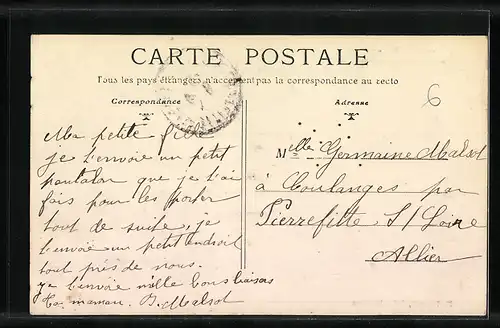 CARTE POSTALE
Tous les pays étrangers n'acceptent pas la correspondance au recto
Correspondance
Adresse
6
Ma petite fille
je t'envoie un petit
pantalon que je t'ai
fais pour les porter
tout de suite, je
t'envoie un petit endroit
tout près de nous.
je t'envoie mille bons baisers
Ta maman. J. Malsot
Mlle Germaine Malsot
à Coulanges par
Pierrefitte S/Loire
Allier